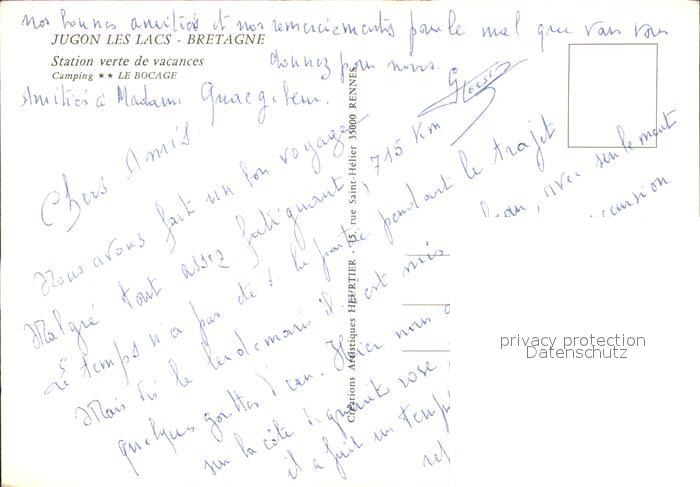 nos bonnes amitiés et nos remerciements pour le mal que vous vous
donnez pour nous.
JUGON LES LACS - BRETAGNE
Station verte de vacances
Camping ★★ LE BOCAGE
Amitiés à Madame
Chers Amis
Nous avons fait un bon voyage
Malgré tout assez fatiguant, 715 Km
Le temps n'a pas été de la partie pendant le trajet
Mais dès le lendemain il s'est mis beau, avec seulement
quelques gouttes d'eau. Hier nous excursion
sur la côte de granit rose
il a fait un temps
Créations Artistiques HEURTIER - 15, rue Saint-Hélier 35000 RENNES
privacy protection
Datenschutz